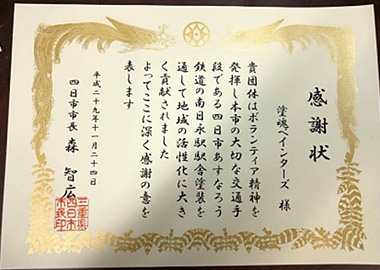 感謝状
塗魂ペインターズ 様
貴団体はボランティア精神を
発揮し本市の大切な交通手
段である四日市あすなろう
鉄道の南日永駅駅舎塗装を
通して地域の活性化に大き
く貢献されました
よってここに深く感謝の意を
表します
平成二十九年十一月二十四日
四日市市長 森 智広
三重県
四日市
市長印